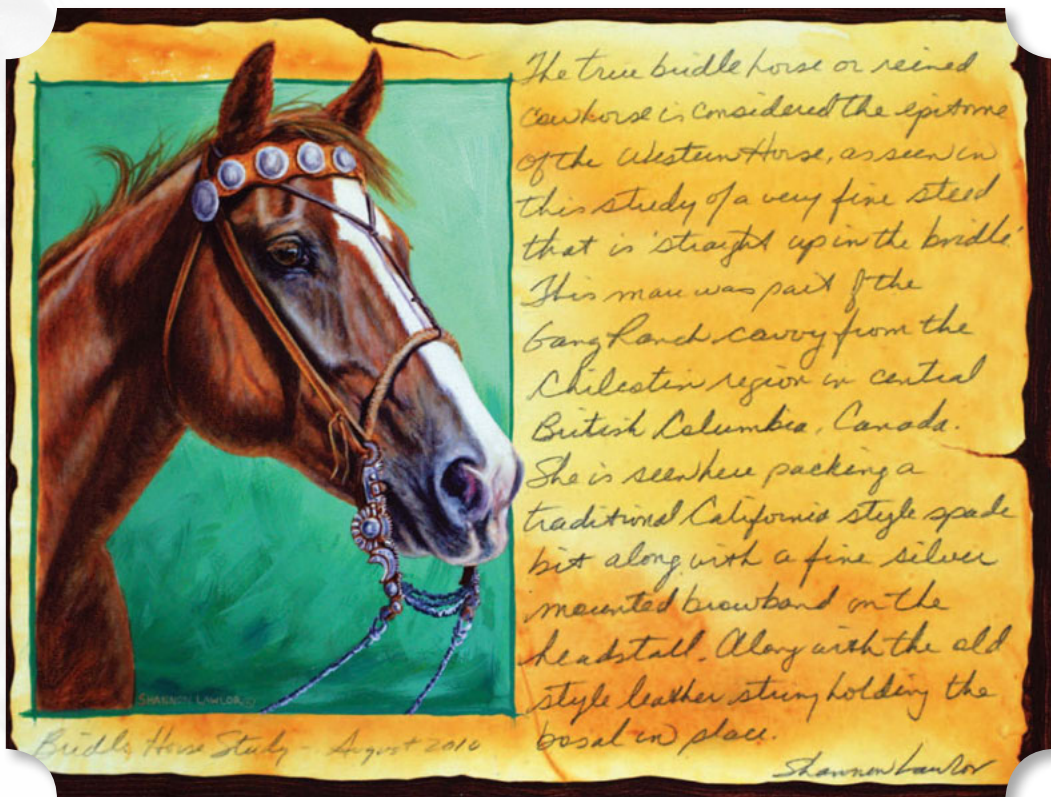 The true bridle horse or reined
cowhorse is considered the epitome
of the Western Horse, as seen in
this study of a very fine steed
that is 'straight up in the bridle.'
This mare was part of the
Gang Ranch cavvy from the
Chilcotin region in central
British Columbia, Canada.
She is seen here packing a
traditional California style spade
bit along with a fine silver
mounted browband on the
headstall. Along with the old
style leather string holding the
bosal in place.
Shannon Lawlor
SHANNON LAWLOR
Bridle Horse Study - August 2010